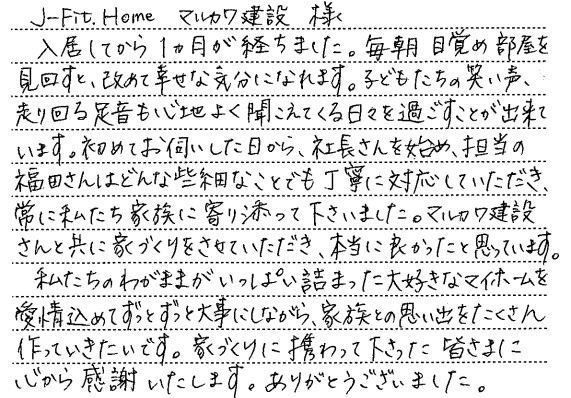 J-Fit.Home マルカワ建設 様
入居してから1ヵ月が経ちました。毎朝目覚め部屋を
見回すと、改めて幸せな気分になれます。子どもたちの笑い声、
走り回る足音も心地よく聞こえてくる日々を過ごすことが出来て
います。初めてお伺いした日から、社長さんを始め、担当の
福田さんはどんな些細なことでも丁寧に対応していただき、
常に私たち家族に寄り添って下さいました。マルカワ建設
さんと共に家づくりをさせていただき、本当に良かったと思っています。
私たちのわがままがいっぱい詰まった大好きなマイホームを
愛情込めてずっとずっと大事にしながら、家族との思い出をたくさん
作っていきたいです。家づくりに携わって下さった皆さまに
心から感謝いたします。ありがとうございました。